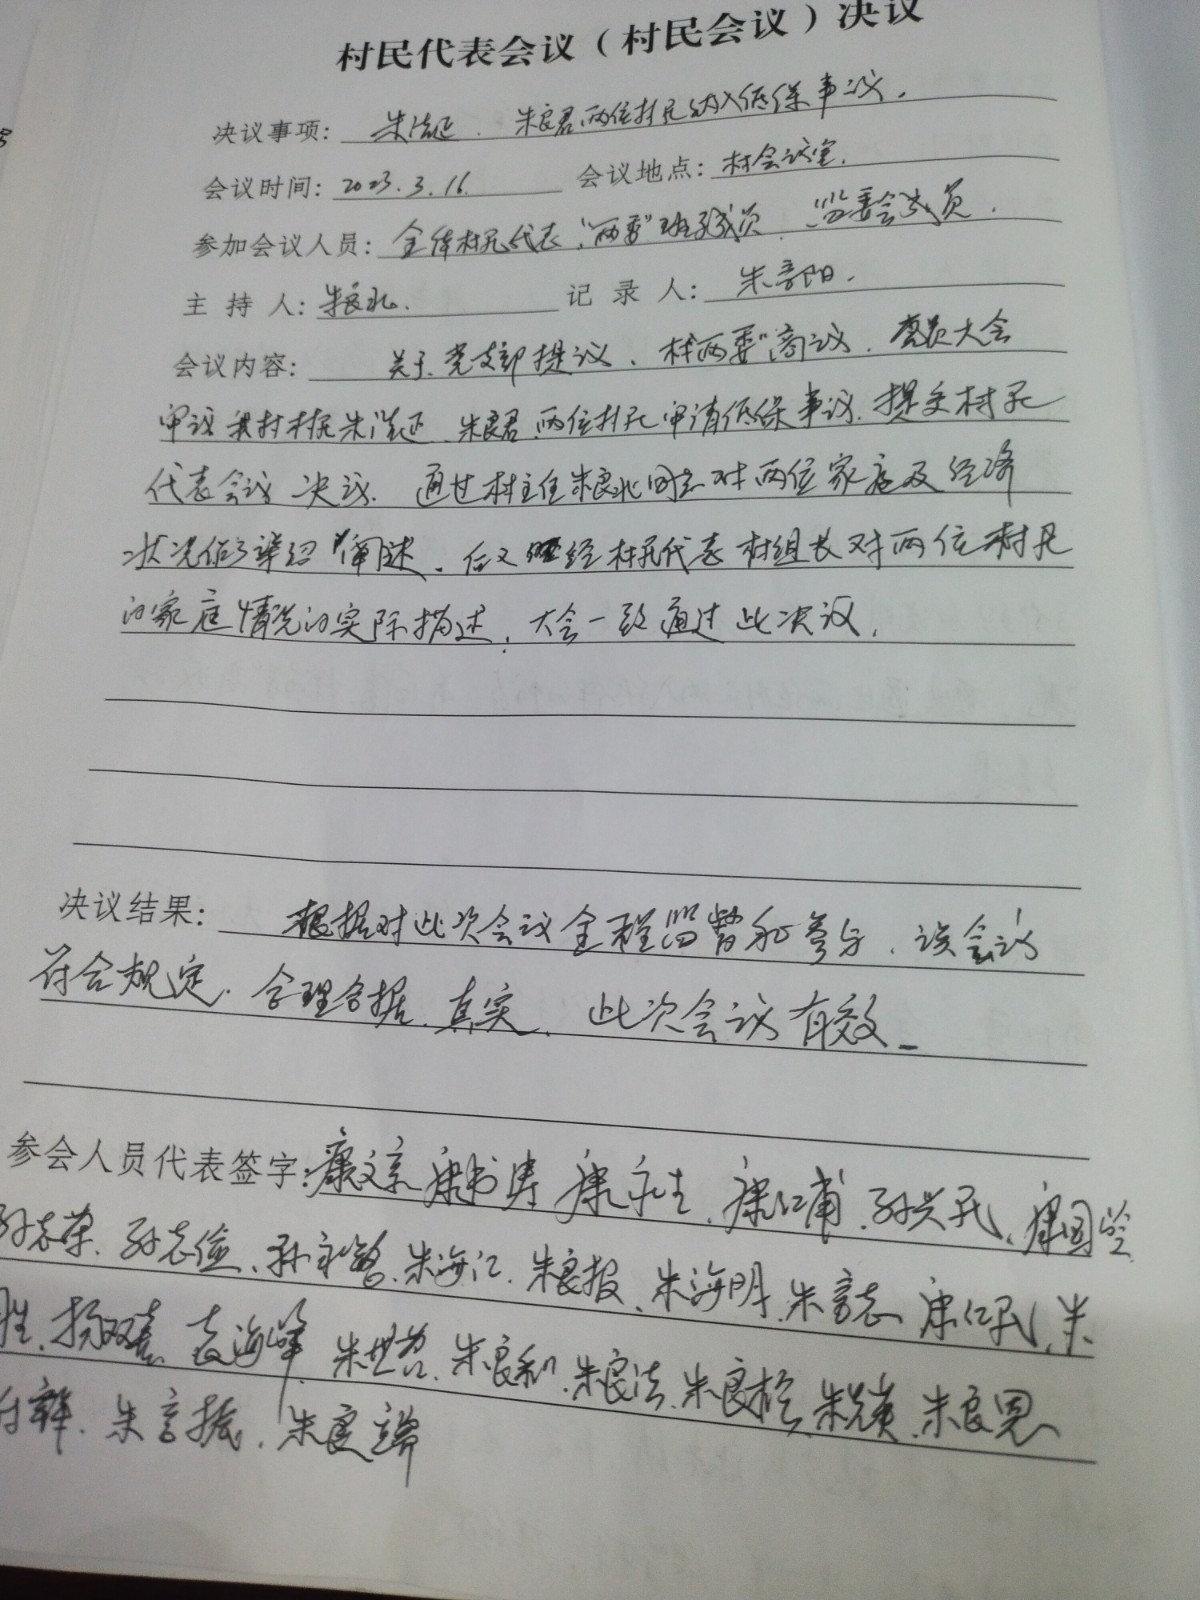 村民代表会议（村民会议）决议
决议事项: 朱洪延、朱良君两位村民纳入低保事议。
会议时间: 2023.3.16. 会议地点: 村会议室.
参加会议人员: 全体村民代表，"两委"班子成员、监委会成员.
主持人: 朱良北. 记录人: 朱彦阳.
会议内容: 关于党支部提议、村"两委"商议、党员大会
审议我村村民朱洪延、朱良君两位村民申请低保事议.提交村民
代表会议决议.通过村主任朱良北同志对两位家庭及经济
状况做了详细阐述、后又经村民代表村组长对两位村民
的家庭情况的实际描述，大会一致通过此决议.
决议结果: 根据对此次会议全程监督和参与、该会议
符合规定.合理合据、真实、此次会议有效
参会人员代表签字: 康文 康书寿 康永生、康仁甫、孙兴民、康国
孙志荣、孙志俭、孙永智、朱海江、朱良报、朱海明、朱彦志 康仁民、朱
胜、杨双喜 袁海峰、朱世召、朱良和、朱良法、朱良栓、朱 朱良恩
朱言振、朱良